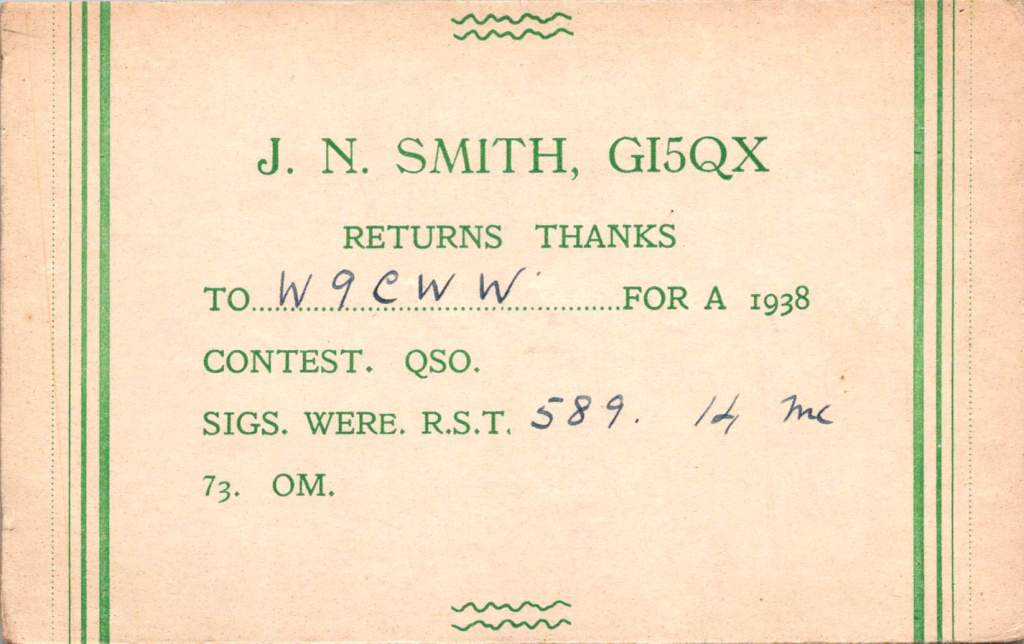 J. N. SMITH, GI5QX
RETURNS THANKS
TO W9CWW FOR A 1938
CONTEST. QSO.
SIGS. WERE. R.S.T. 589. 14 mc
73. OM.